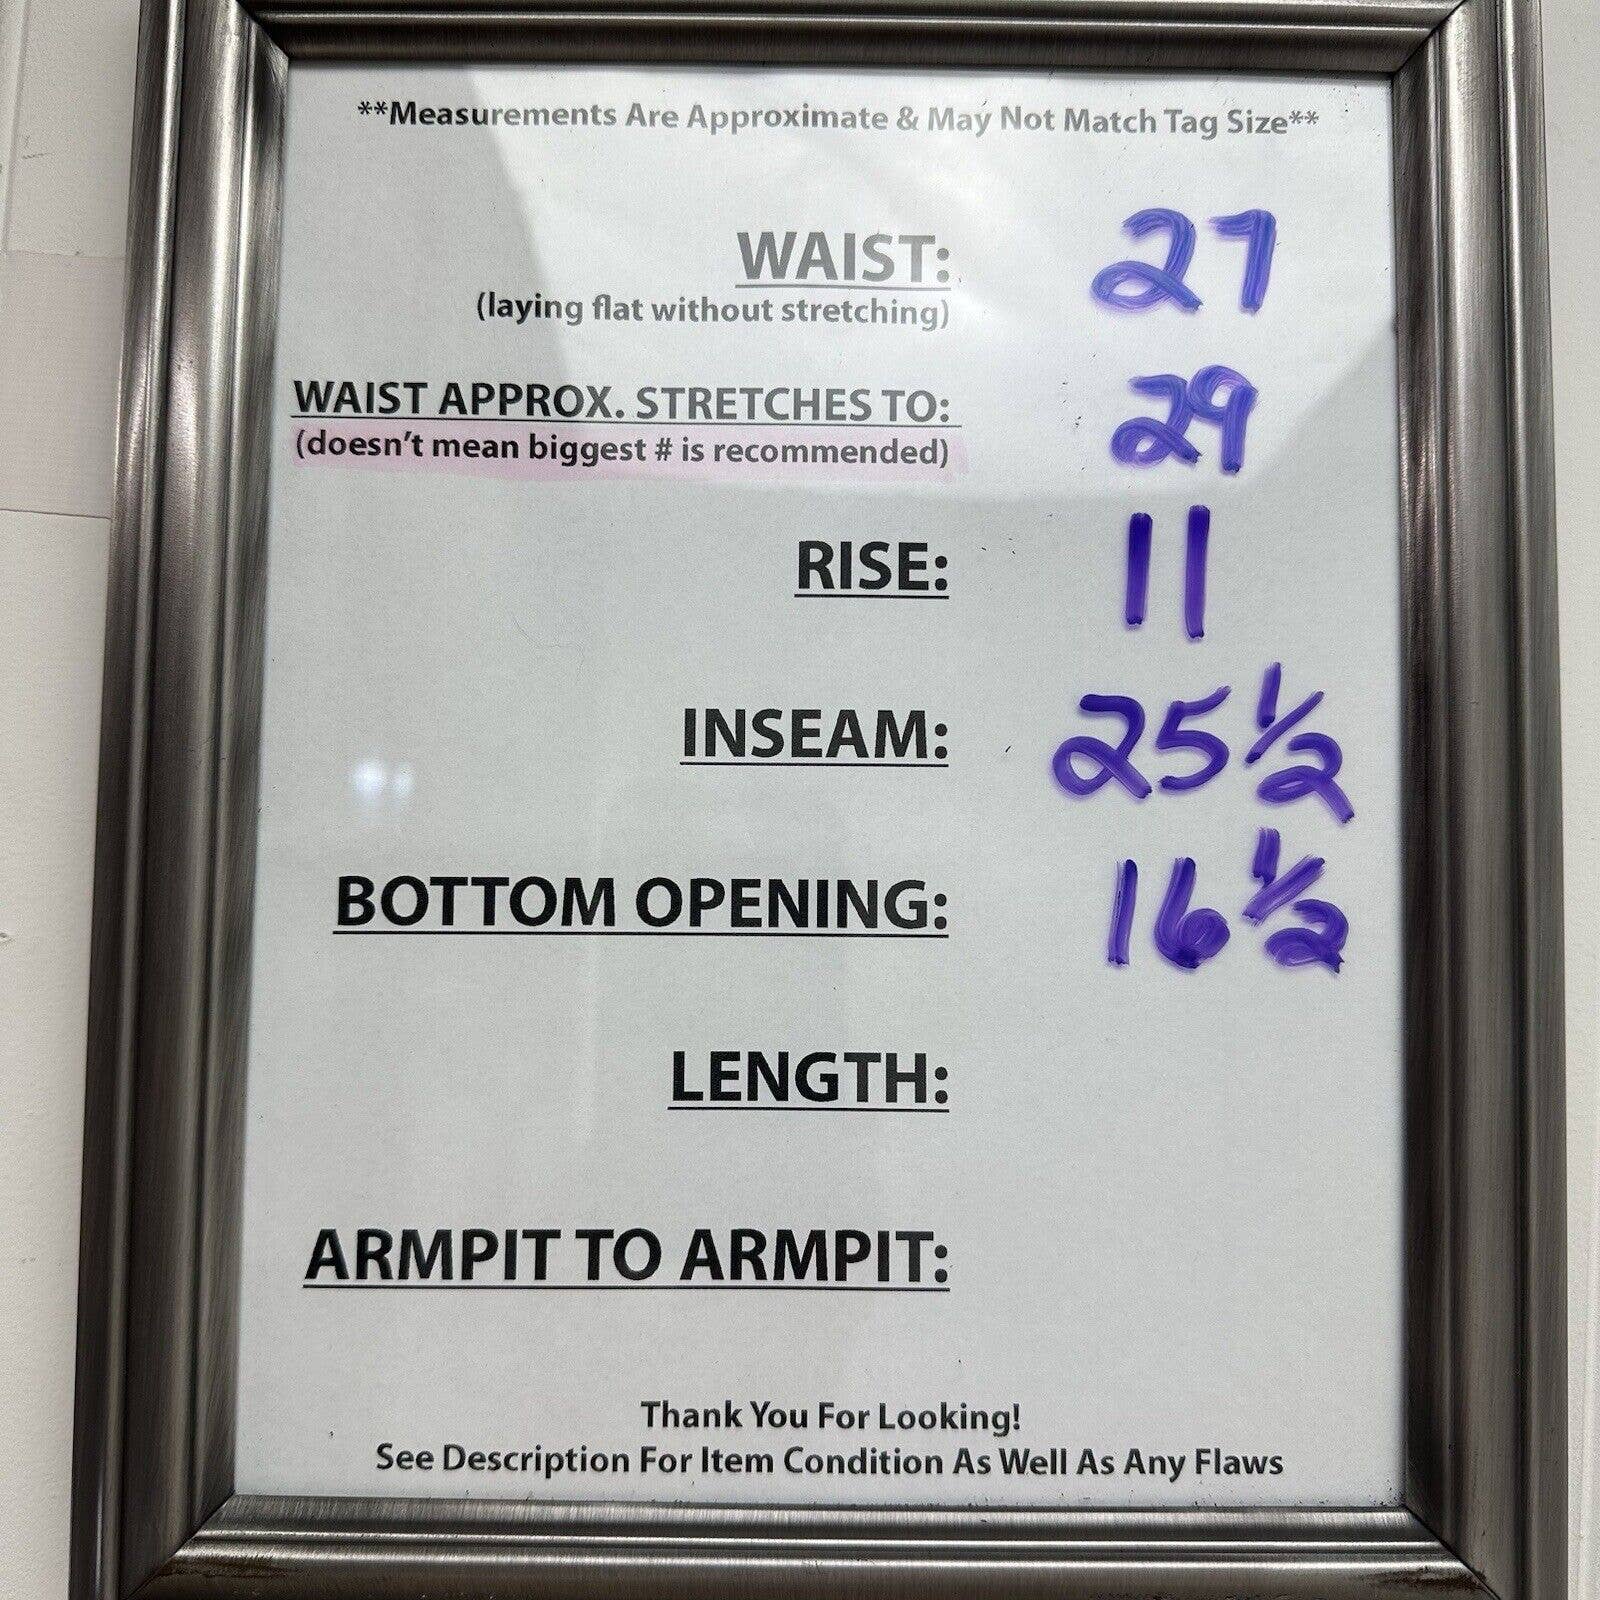 **Measurements Are Approximate & May Not Match Tag Size**
WAIST: 27
(laying flat without stretching)
WAIST APPROX. STRETCHES TO: 29
(doesn't mean biggest # is recommended)
RISE: 11
INSEAM: 25 1/2
BOTTOM OPENING: 16 1/2
LENGTH:
ARMPIT TO ARMPIT:
Thank You For Looking!
See Description For Item Condition As Well As Any Flaws